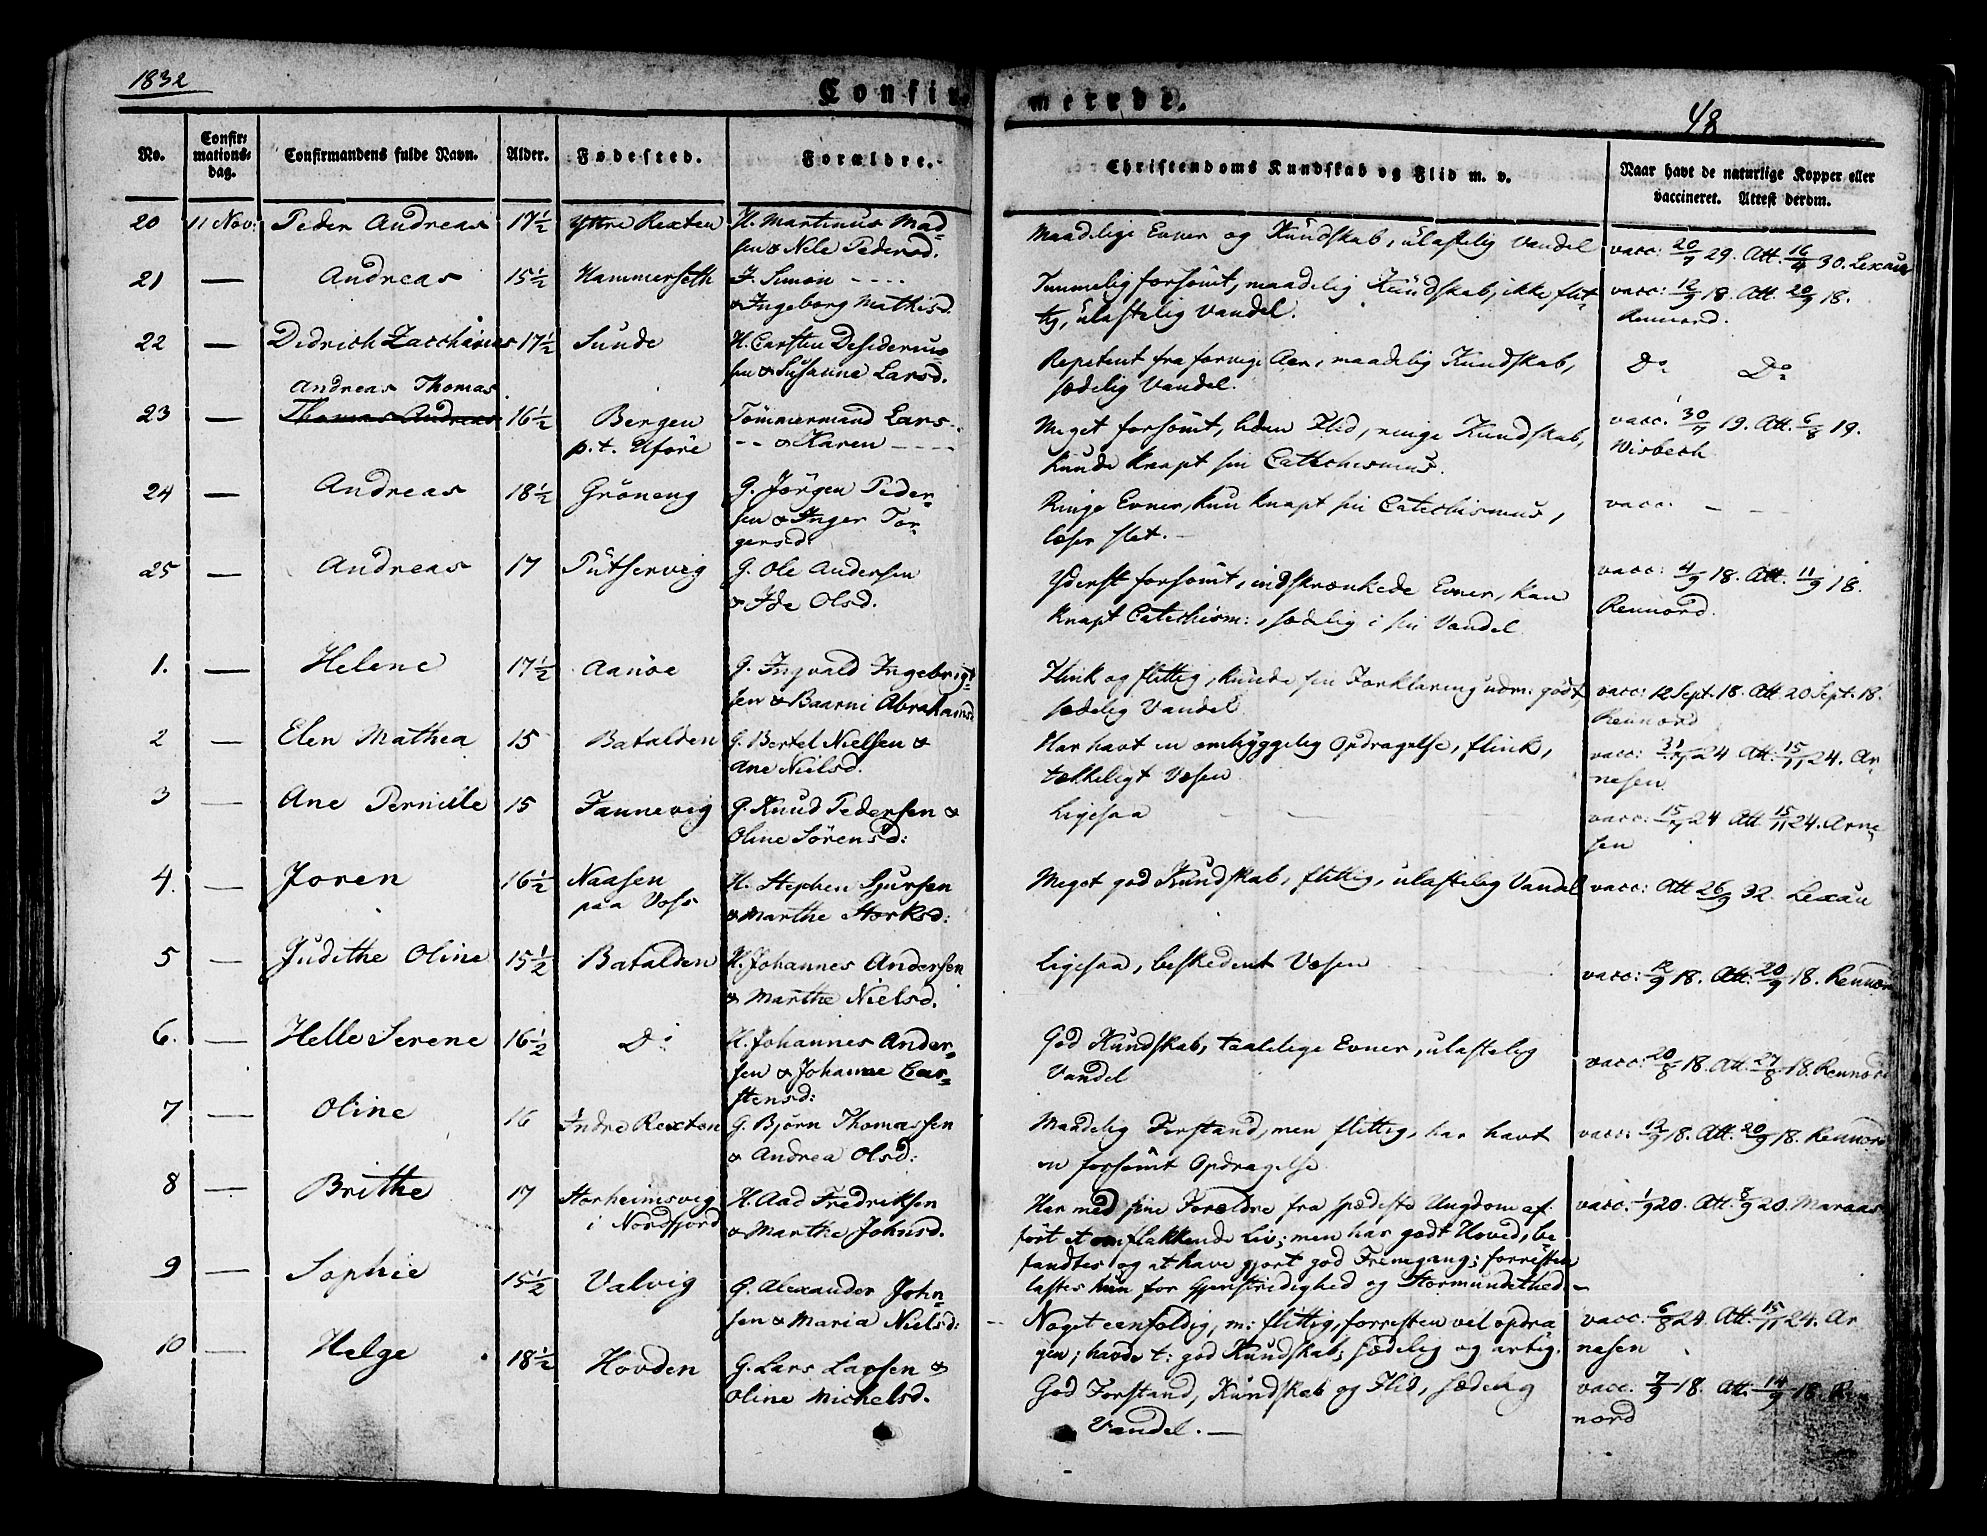 1832
Confirmerede.
48
No. Confirmationsdag. Confirmandens fulde Navn. Alder. Fødested. Forældre. Christendoms Kundskab og Flid m. v. Naar havt de naturlige Kopper eller vaccineret. Attest derom.
20 11 Nov: Peder Andreas 17½ Yttre Rexten H. Martinus Mad-
sen & Nele Pedersd. Maadelige Evner og Kundskab, ulastelig Vandel vacc: 20/7 29. Att. 16/4 30. Lexau
21 — Andreas 15½ Hammerseth J. Simon - - - -
& Ingeborg Mathisd. Temmelig forsömt, maadelig Kundskab, ikke flit-
tig, ulastelig Vandel. vacc: 12/9 18. Att. 20/9 18.
Rennord.
22 — Didrich Zacharias 17½ Sunde H. Carsten Desiderius
sen & Susanne Larsd. Repetent fra forrige Aar, maadelig Kundskab,
sædelig Vandel. Do Do
23 — Andreas Thomas
Thomas Andreas 16½ Bergen
p.t. Uföre Tömmermand Lars - -
- - & Karen - - - - Meget forsömt, liden Flid, ringe Kundskab,
kunde knapt sin Catechismus. vacc: 30/7 19. Att. 6/8 19.
Wisbech
24 — Andreas 18½ Gröneng G. Jörgen Peder-
sen & Inger Tor-
gersd. Ringe Evner, kun knapt sin Catechismus,
læser slet. - vacc. — —
25 — Andreas 17 Pütservig G. Ole Andersen
& Ide Olsd. Yderst forsömt, indskrænkede Evner, kan
knapt Catechism:, sædelig i sin Vandel vacc: 4/9 18. Att. 11/9 18.
Rennord.
1. — Helene 17½ Aanöe G. Ingvald Ingebrigt-
sen & Baarni Abrahamsd Flink og flittig, kunde sin Forklaring udm: godt,
sædelig Vandel vacc: 12 Sept. 18. Att. 20 Sept. 18.
Rennord
2 — Elen Mathea 15 Batalden G. Bertel Nielsen &
Ane Nielsd. Har havt en omhyggelig Opdragelse, flink,
tækkeligt Væsen vacc: 31/7 24 Att. 15/11 24. Ar-
nesen
3 Ane Pernille 15 Fannevig G. Knud Pedersen &
Oline Sörensd: Ligesaa — — vacc: 15/7 24 Att 15/11 24. Arne
sen
4. — Joren 16½ Naasen
paa Voss H. Stephen Sjursen
& Marthe Storksd: Meget god Kundskab, flittig, ulastelig Vandel vacc: Att 26/9 32. Lexau
5 — Judithe Oline 15½ Batalden H. Johannes Andersen
& Marthe Nielsd. Ligesaa, beskedent Væsen vacc: 12/9 18. Att. 20/9 18. Rennord
6. — Helle Serene 16½ Do H. Johannes Ander-
sen & Johanne Car-
stensd: God Kundskab, taalelige Evner, ulastelig
Vandel vacc: 20/8 18. Att. 27/8 18. Rennord
7 — Oline 16 Indre Rexten G. Björn Thomassen
& Andrea Olsd: Maadelig Forstand, men flittig, har havt
en forsömt Opdragelse vacc: 12/9 18. Att. 20/9 18. Rennord
8 — Brithe 17 Storheimsvig
i Nordfjord H. Aad Fredriksen
& Marthe Johnsd. Har med sine Forældre fra spædeste Ungdom af
fört et omflakkende Liv; men har godt Hoved, be-
fandtes og at have gjort god Fremgang; forresten
lastes hun for Gjenstridighed og Stormundethed - vacc. 1/9 20. Att. 8/9 20. Maraas
9 — Sophie 15½ Valvig G. Alexander John-
sen & Maria Nielsd: Noget eenfoldig, m: flittig, forresten vel opdra
gen; havde t: god Kundskab, sædelig og artig. vacc. 6/8 24. Att. 15/11 24. Ar
nesen
10 — Helge 18½ Hovden G. Lars Larsen &
Oline Michelsd. God Forstand, Kundskab og Flid, sædelig
Vandel. — vacc. 7/9 18. Att. 14/9 18. Ren
nord